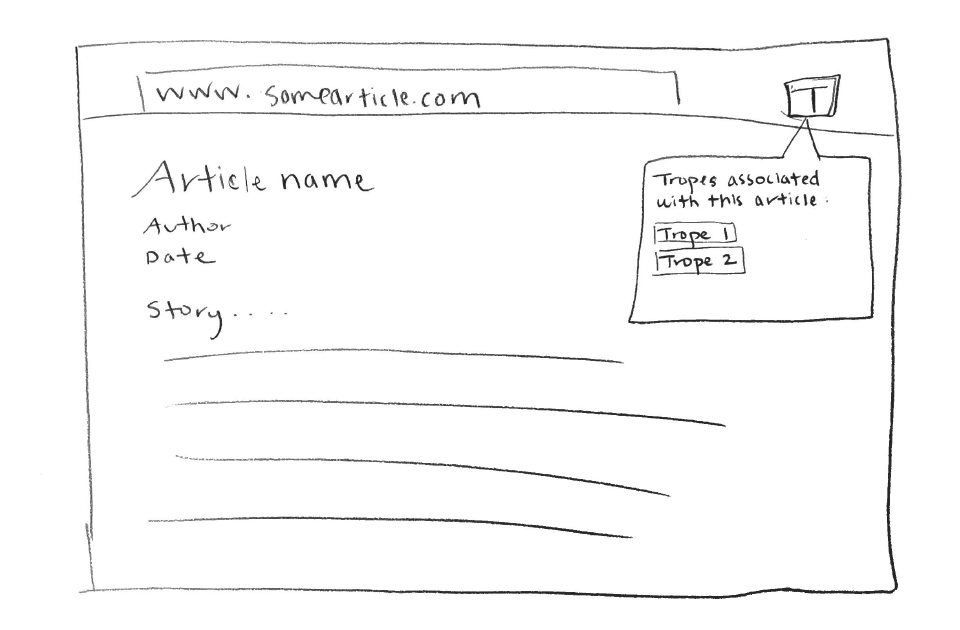 www.somearticle.com
T
Article name
Author
Date
Story.....
Tropes associated
with this article.
Trope 1
Trope 2